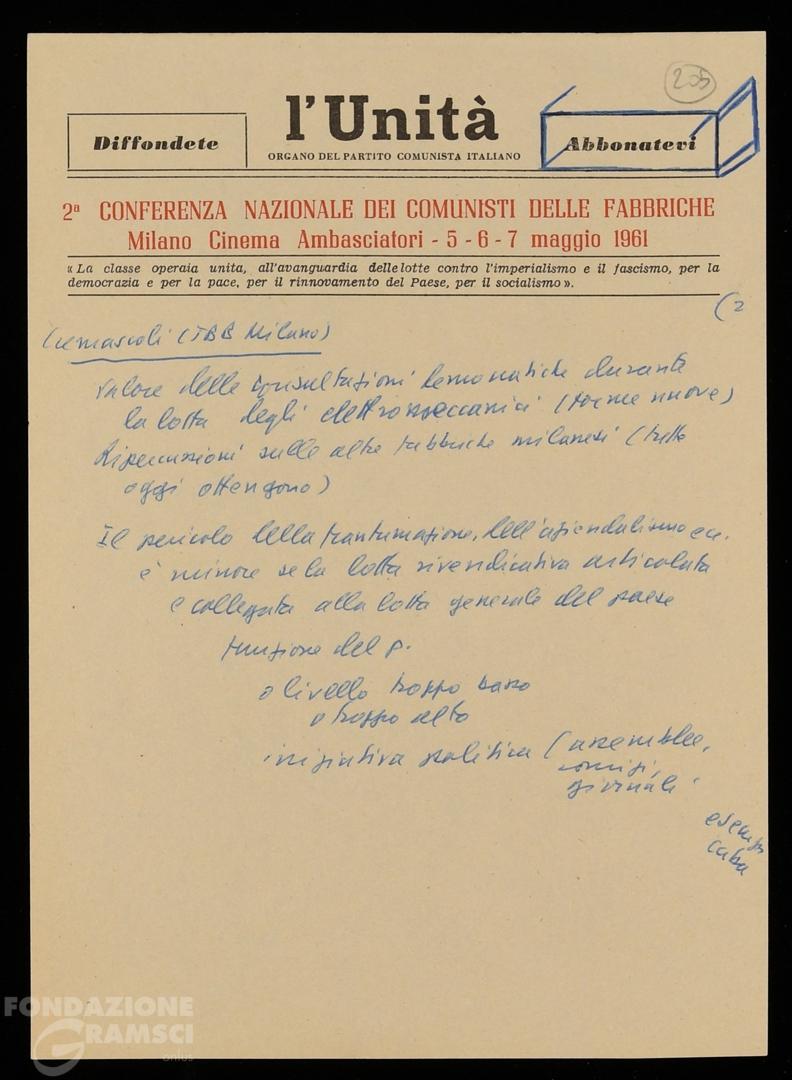 205
Diffondete
l'Unità
Abbonatevi
ORGANO DEL PARTITO COMUNISTA ITALIANO
2ª CONFERENZA NAZIONALE DEI COMUNISTI DELLE FABBRICHE
Milano Cinema Ambasciatori - 5 - 6 - 7 maggio 1961
«La classe operaia unita, all'avanguardia delle lotte contro l'imperialismo e il fascismo, per la
democrazia e per la pace, per il rinnovamento del Paese, per il socialismo».
(2
(TBB Milano)
valore delle consultazioni democratiche durante
la lotta degli elettromeccanici (forme nuove)
Ripercussioni sulle altre fabbriche milanesi (
oggi ottengono)
Il pericolo della frantumazione, dell'aziendalismo ecc.
è minore se la lotta rivendicativa articolata
è collegata alla lotta generale del paese
funzione del p.
o livello troppo basso
o troppo alto
iniziativa politica (assemblee,
comizi,
giornali
esempio
Cuba
FONDAZIONE
GRAMSCI
onlus